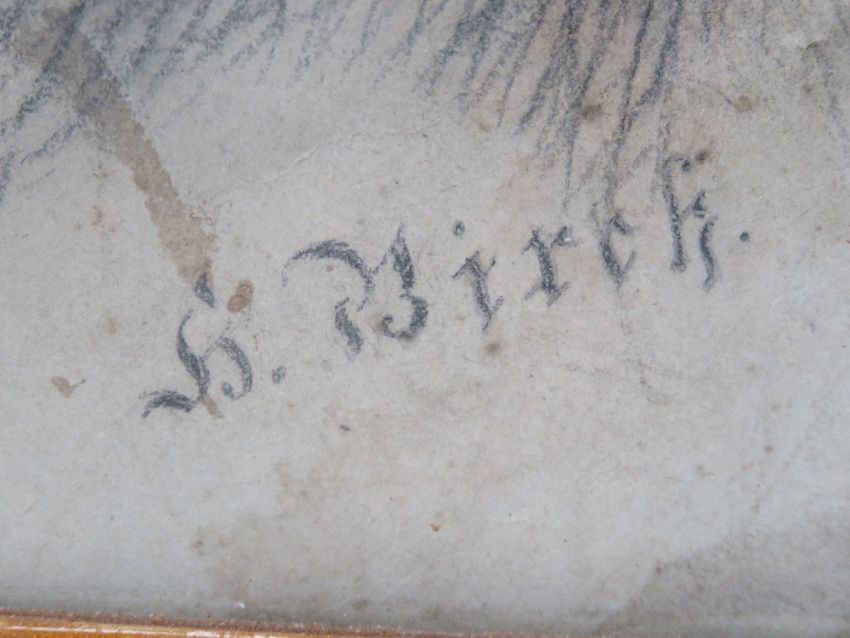 H. Birck.